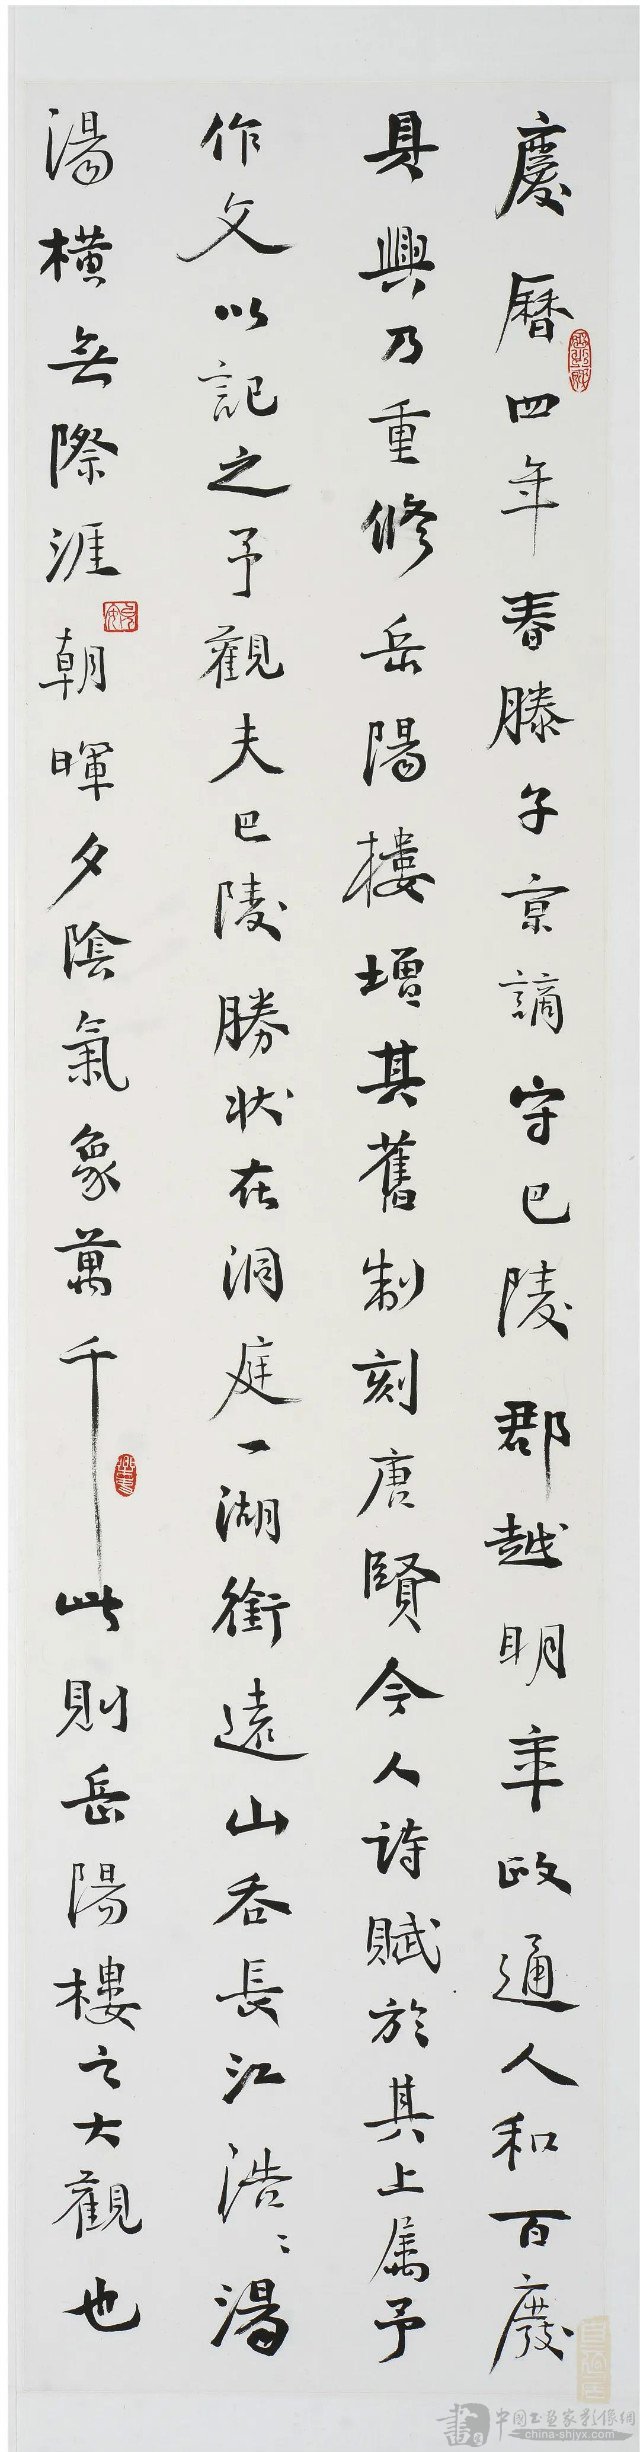 慶曆四年春滕子京謫守巴陵郡越明年政通人和百廢
具興乃重修岳陽樓增其舊制刻唐賢今人詩賦於其上属予
作文以記之予觀夫巴陵勝状在洞庭一湖銜遠山吞長江浩〻湯
湯横無際涯朝暉夕陰氣象萬千此則岳陽樓之大觀也
中國书画家影像網
china-shjyx.com